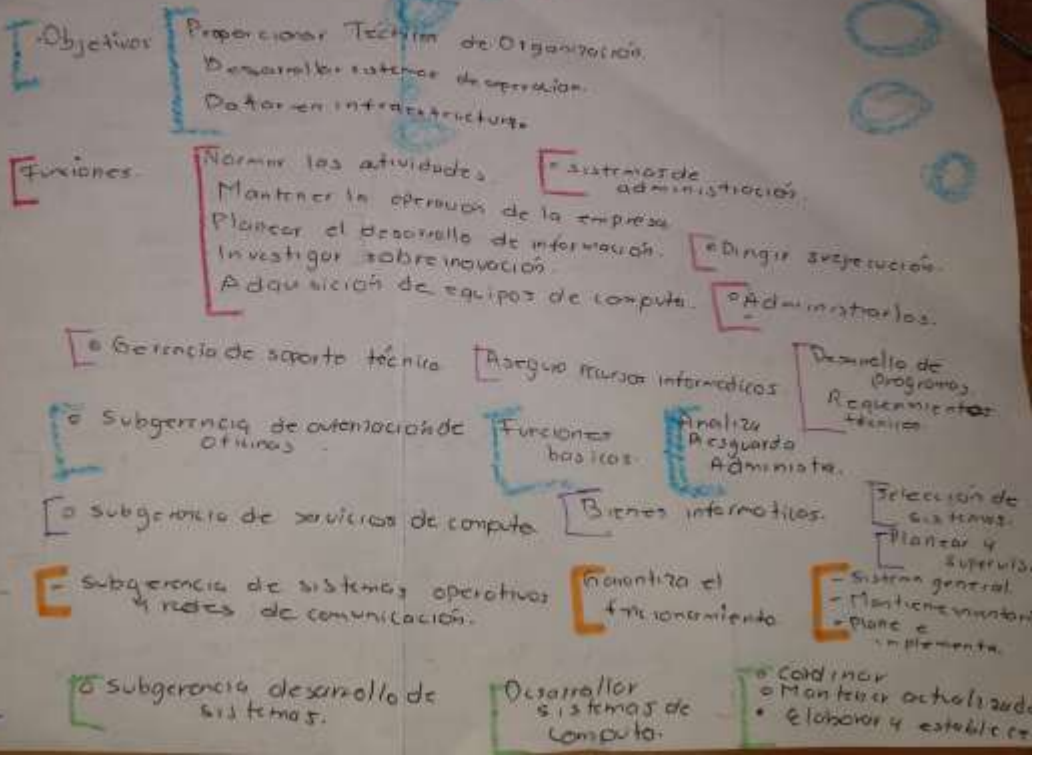 -Objetivos
Proporcionar Tecnim de Organización.
Desarrollar sistemas de operación.
Dotar en infraestructura.
Funciones.
Normar las atividades.
Mantener la operación de la empresa
Planear el desarrollo de información.
Investigar sobre inovación.
Adquisición de equipos de computo.
• sistemas de
administración.
• Dirigir su ejecución.
• Administrarlos.
• Gerencia de soporte técnico
Aseguro recursos informaticos
Desarrollo de
programas.
Requerimientos
técnicos.
• Subgerencia de automatización de
oficinas
Funciones
basicas.
Analiza
Resguarda
Administra.
• subgerencia de servicios de computo
Bienes informaticos.
Selección de
sistemas.
Planear y
supervis
- Subgerencia de sistemas operativos
y redes de comunicación.
Garantiza el
funcionamiento
- Sistema general.
- Mantiene
- plane e
implementa.
• subgerencia desarrollo de
sistemas.
Desarrollar
sistemas de
computo.
• Cordinar
• Mantener actualizad
• Elaborar y establece